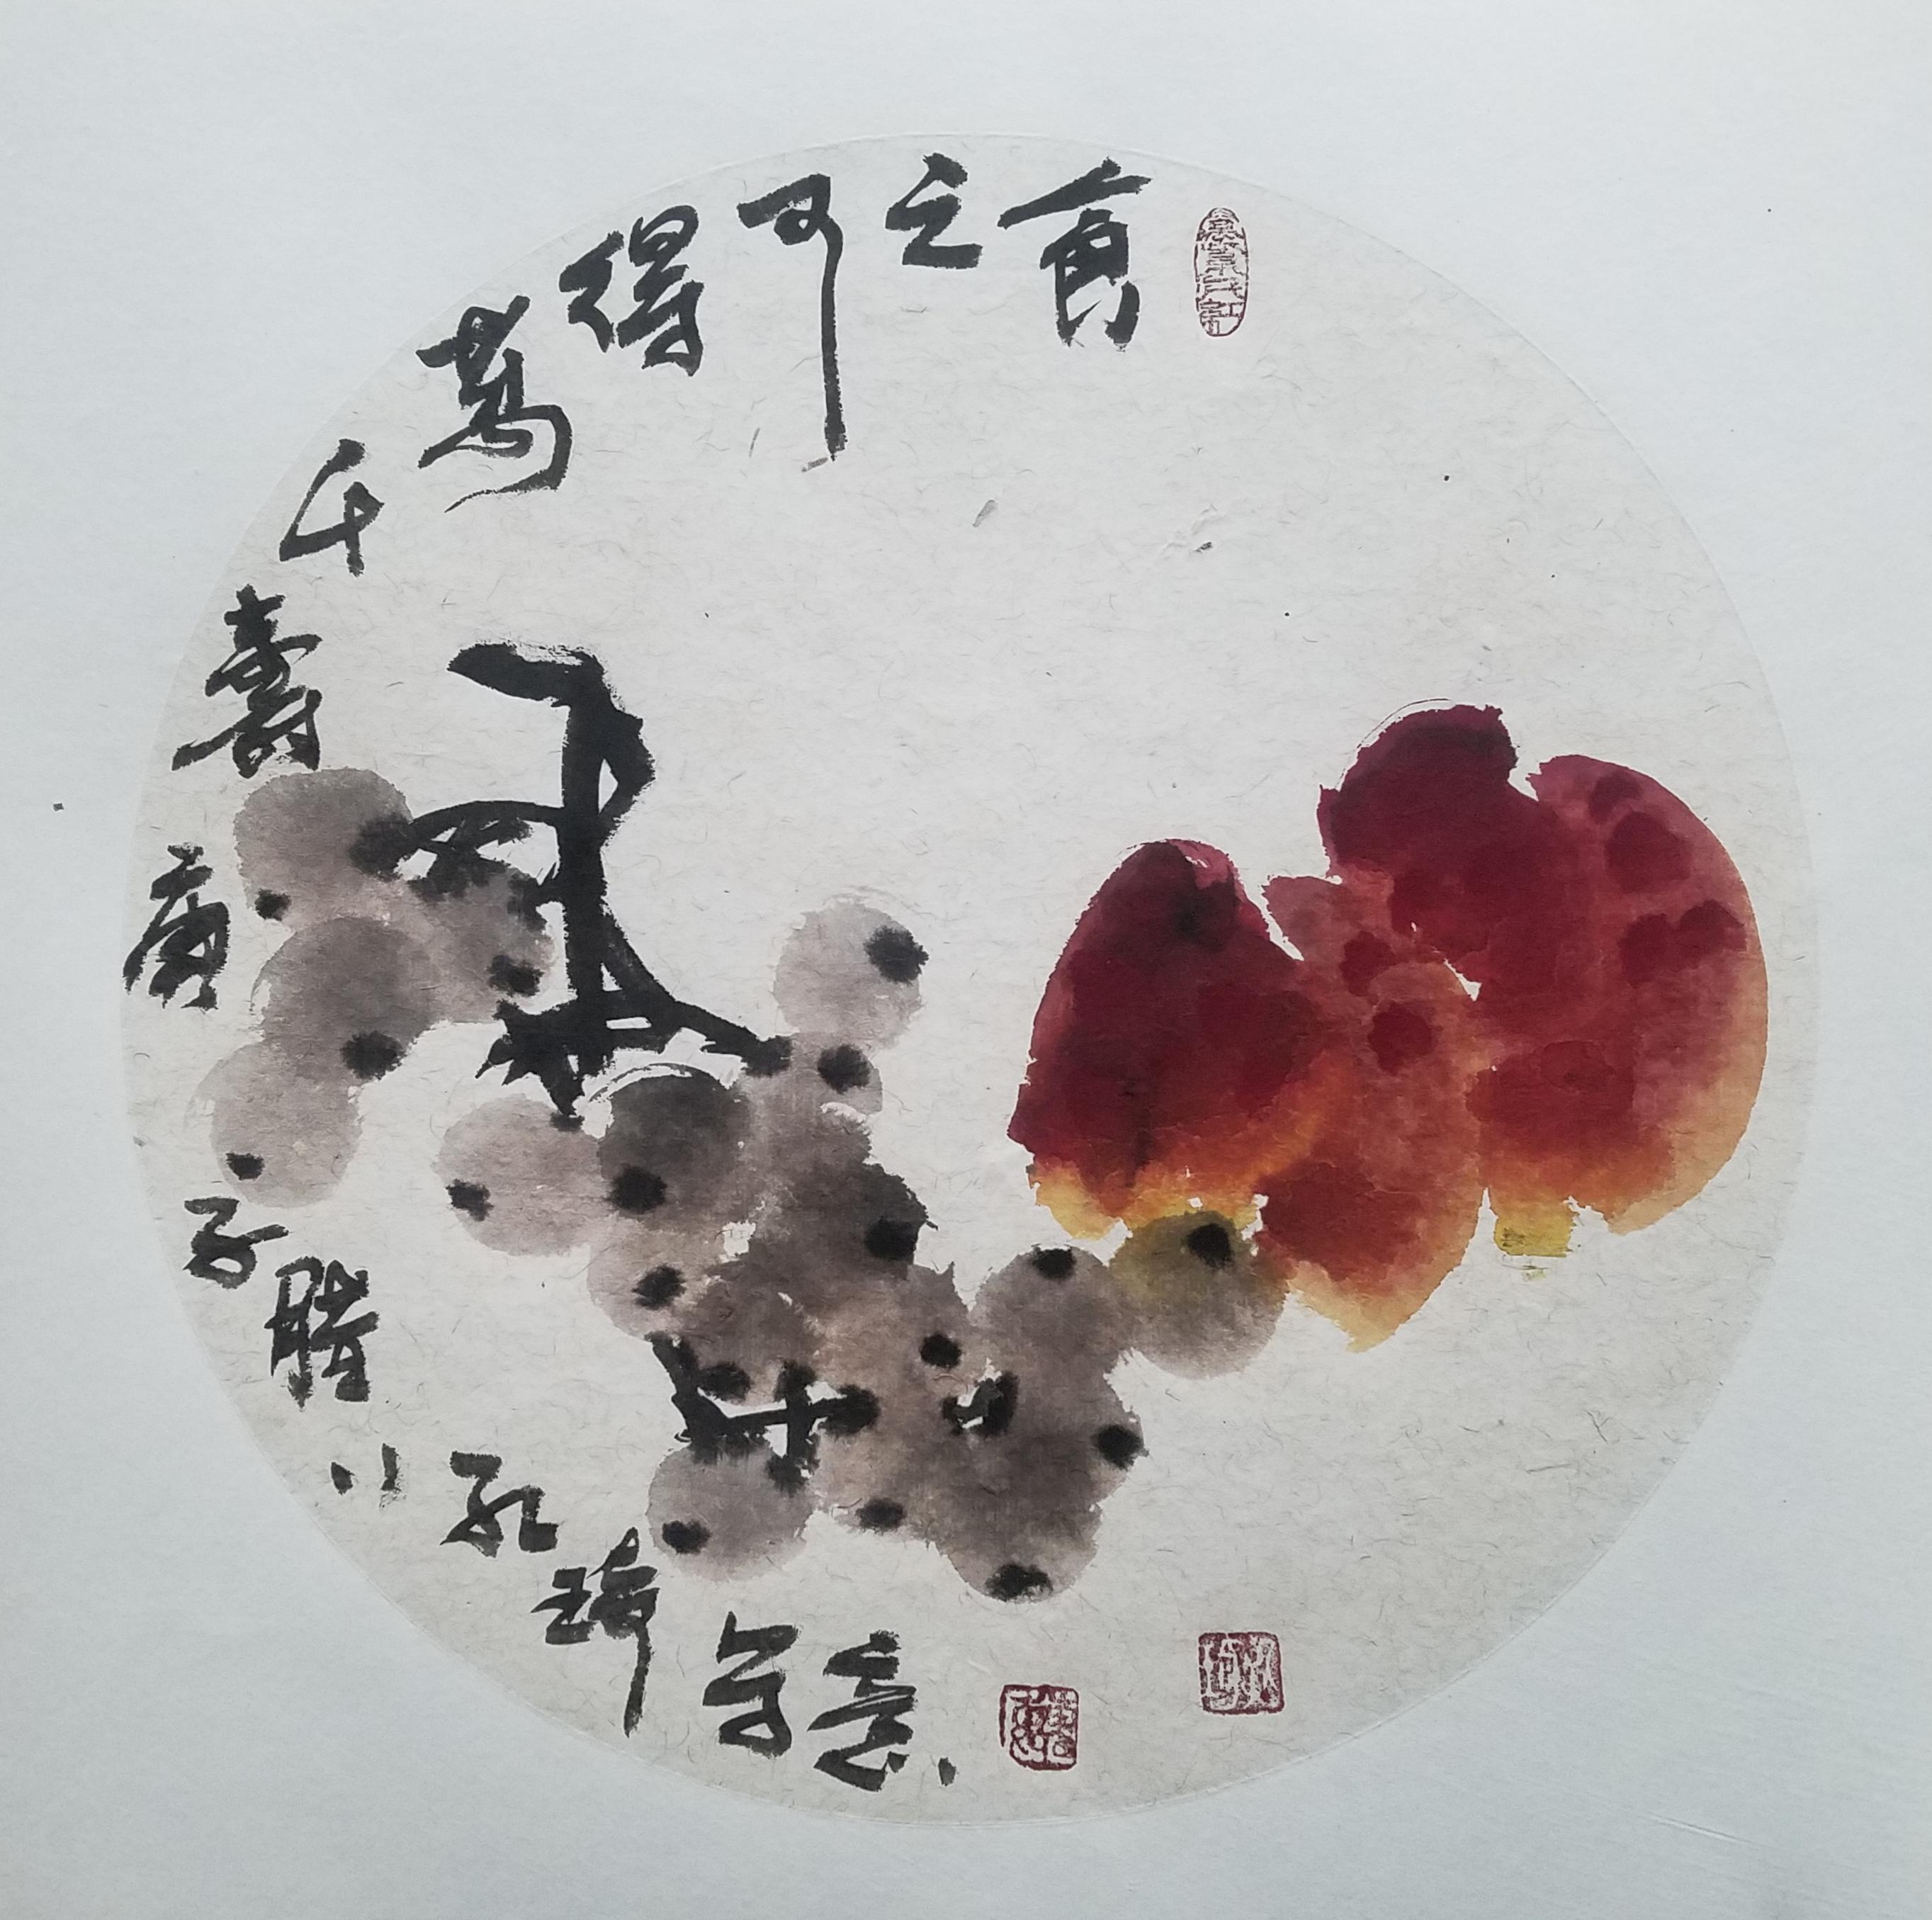 食之可得万千寿
庚子腊八
孔琦写意